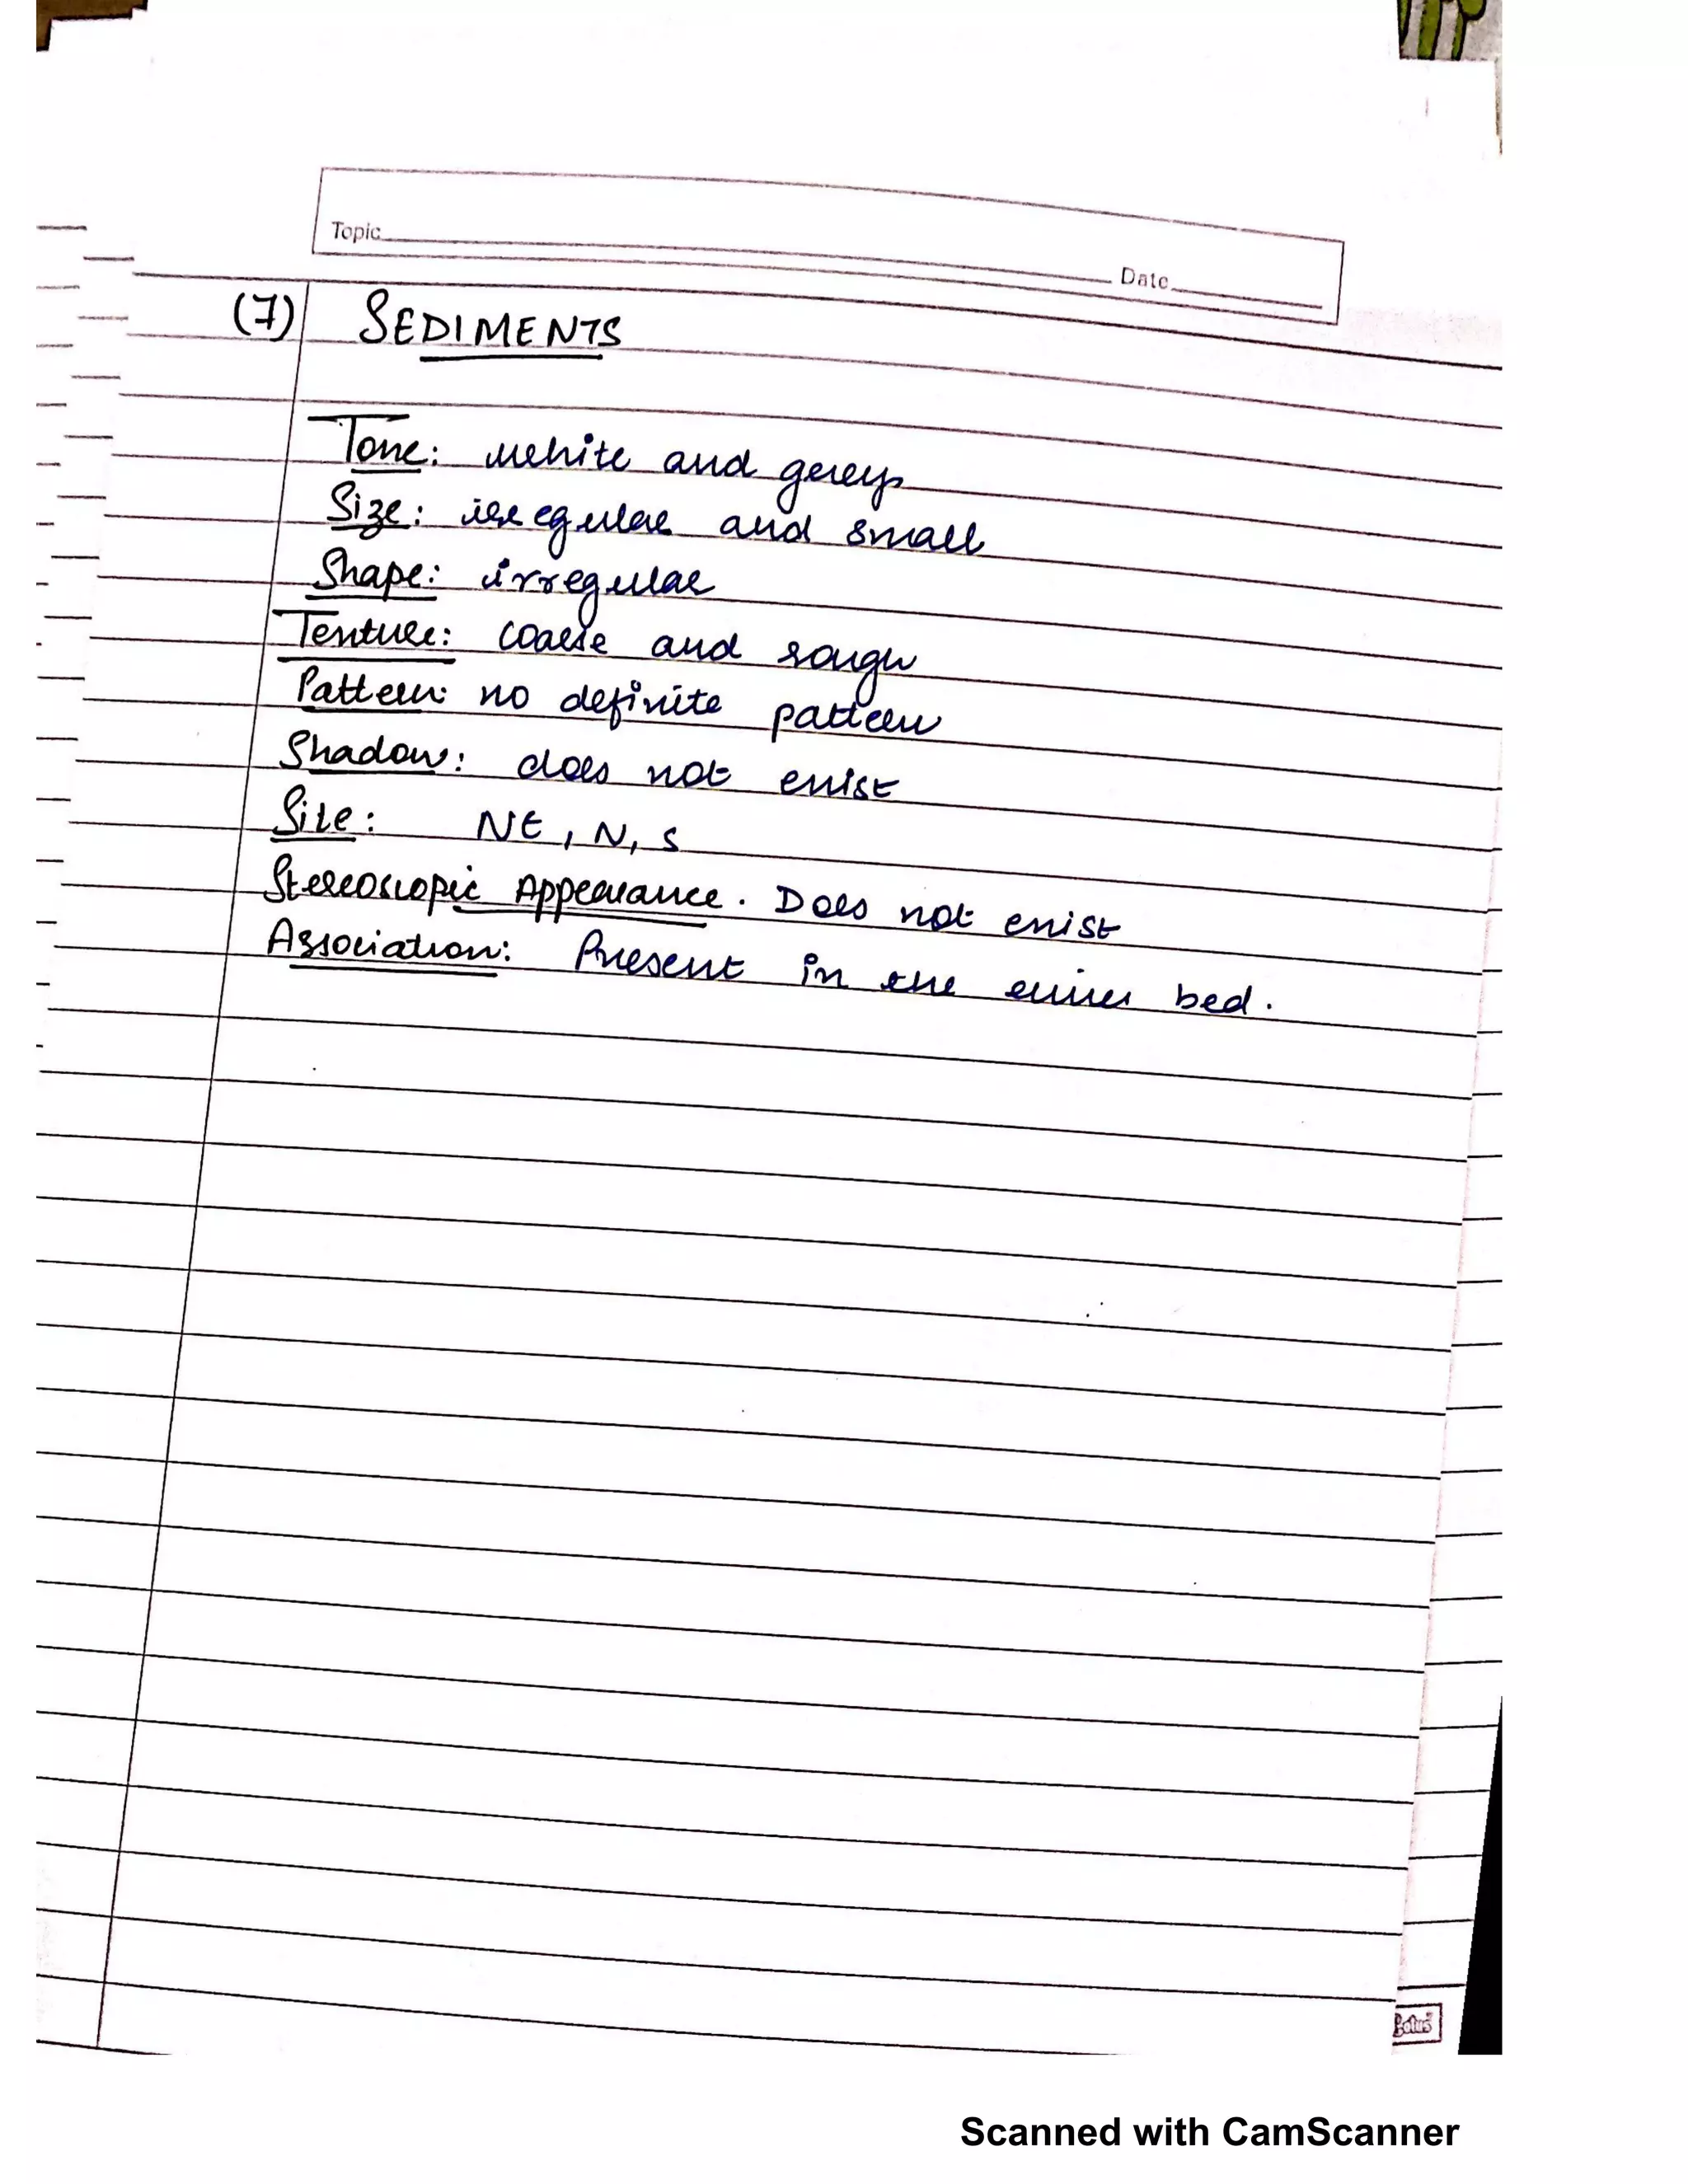 Topic Date
(7) SEDIMENTS
Tone: white and grey
Size: irregular and small
Shape: irregular
Texture: coarse and rough
Pattern: no definite pattern
Shadow: does not exist
Site: NE, N, S
Stereoscopic Appearance. Does not exist
Association: Present in the river bed.
Scanned with CamScanner